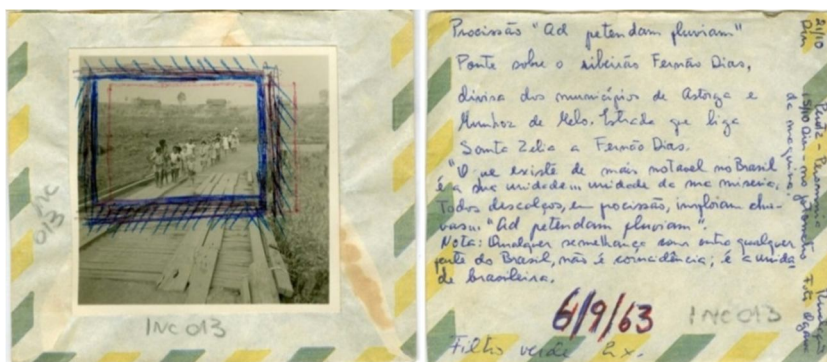 INC 013
INC 013
Procissão "Ad petendam pluviam"
Ponte sobre o ribeirão Fernão Dias,
divisa dos municípios de Astorga e
Munhoz de Melo. Estrada que liga
Santa Zelia a Fernão Dias.
"O que existe de mais notavel no Brasil
é a sua unidade... unidade da sua miseria.
Todos descalços, em procissão, imploram chu-
vas... "Ad petendam pluviam".
Nota: Qualquer semelhança com outra qualquer
parte do Brasil, não é coincidência; é a unida
de brasileira.
6/9/63
INC 013
Filtro verde 2x.
21/10
15/10 Din - no
da maquina.